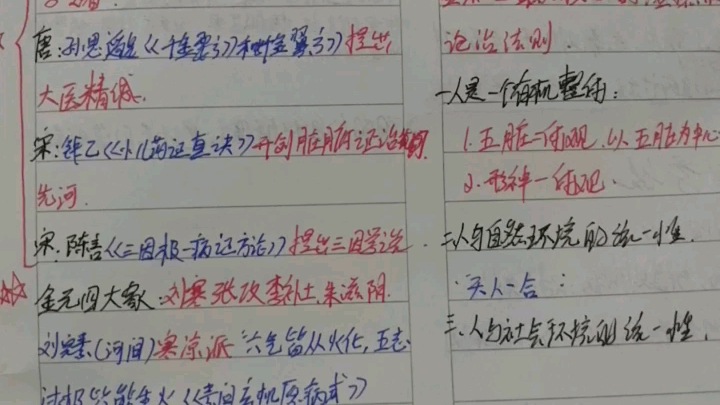 唐:孙思邈《千金要方》和《千金翼方》提出
大医精诚.
宋:钱乙《小儿药证直诀》开创脏腑证治
先河.
宋:陈言《三因极一病证方论》提出三因学说.
金元四大家:刘寒张攻李补土,朱滋阴.
刘完素(河间)寒凉派 六气皆从火化,五志
过极皆能生火《素问玄机原病式》
论治法则.
一人是一个有机整体:
1.五脏一体观,以五脏为中心
2.形神一体观.
二.人与自然环境的统一性.
天人合一:
三、人与社会环境的统一性.